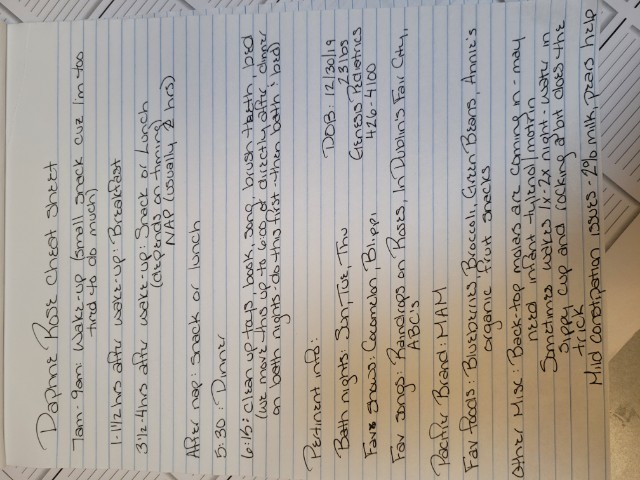 Daphne Rose Cheat Sheet
7am-9am: Wake-up (small snack cuz I'm too
tired to do much)
1-1 1/2 hrs after wake-up: Breakfast
3 1/2-4hrs after wake-up: Snack or Lunch
(depends on timing)
NAP (usually 2 hrs)
After nap: Snack or lunch
5:30: Dinner
6:15: Clean up toys, book, song, brush teeth, bed
(we move this up to 6:00 or directly after dinner
on bath nights - do this first - then bath & bed)
Pertinent info:
Bath nights: Sun, Tue, Thu
DOB: 12/30/19
23 lbs
Fave Shows: Cocomelon, Blippi
Genesis Pediatrics
426-4100
Fav songs: Raindrops on Roses, In Dublin's Fair City,
ABC's
Pacifier Brand: MAM
Fav Foods: Blueberries, Broccoli, Green Beans, Annie's
organic fruit snacks
Other Misc: Back-top molars are coming in - may
need infant tylenol/motrin
Sometimes wakes 1x-2x night - water in
sippy cup and rocking a bit does the
trick
Mild constipation issues - 2% milk, pears help